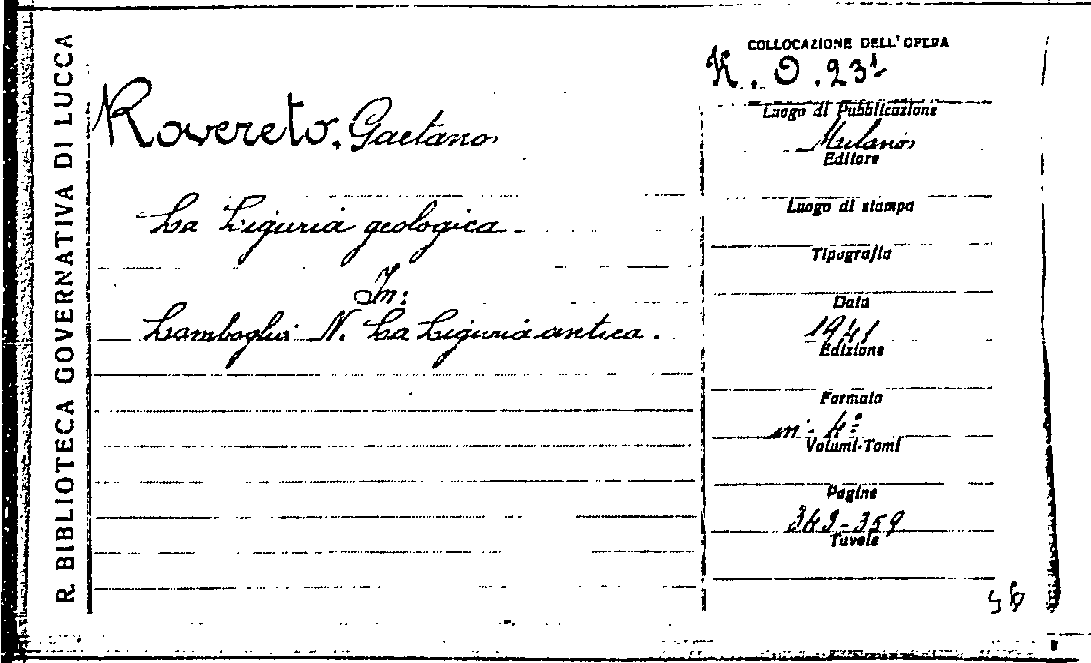 R. BIBLIOTECA GOVERNATIVA DI LUCCA
Rovereto. Gaetano
La Liguria geologica.
In:
Lamboglia N. La Liguria antica.
COLLOCAZIONE DELL'OPERA
K. O. 23¹
Luogo di Pubblicazione
Milano
Editore
Luogo di stampa
Tipografia
Data
1941
Edizione
Formato
in-4º
Volumi-Tomi
Pagine
349-359
Tavole